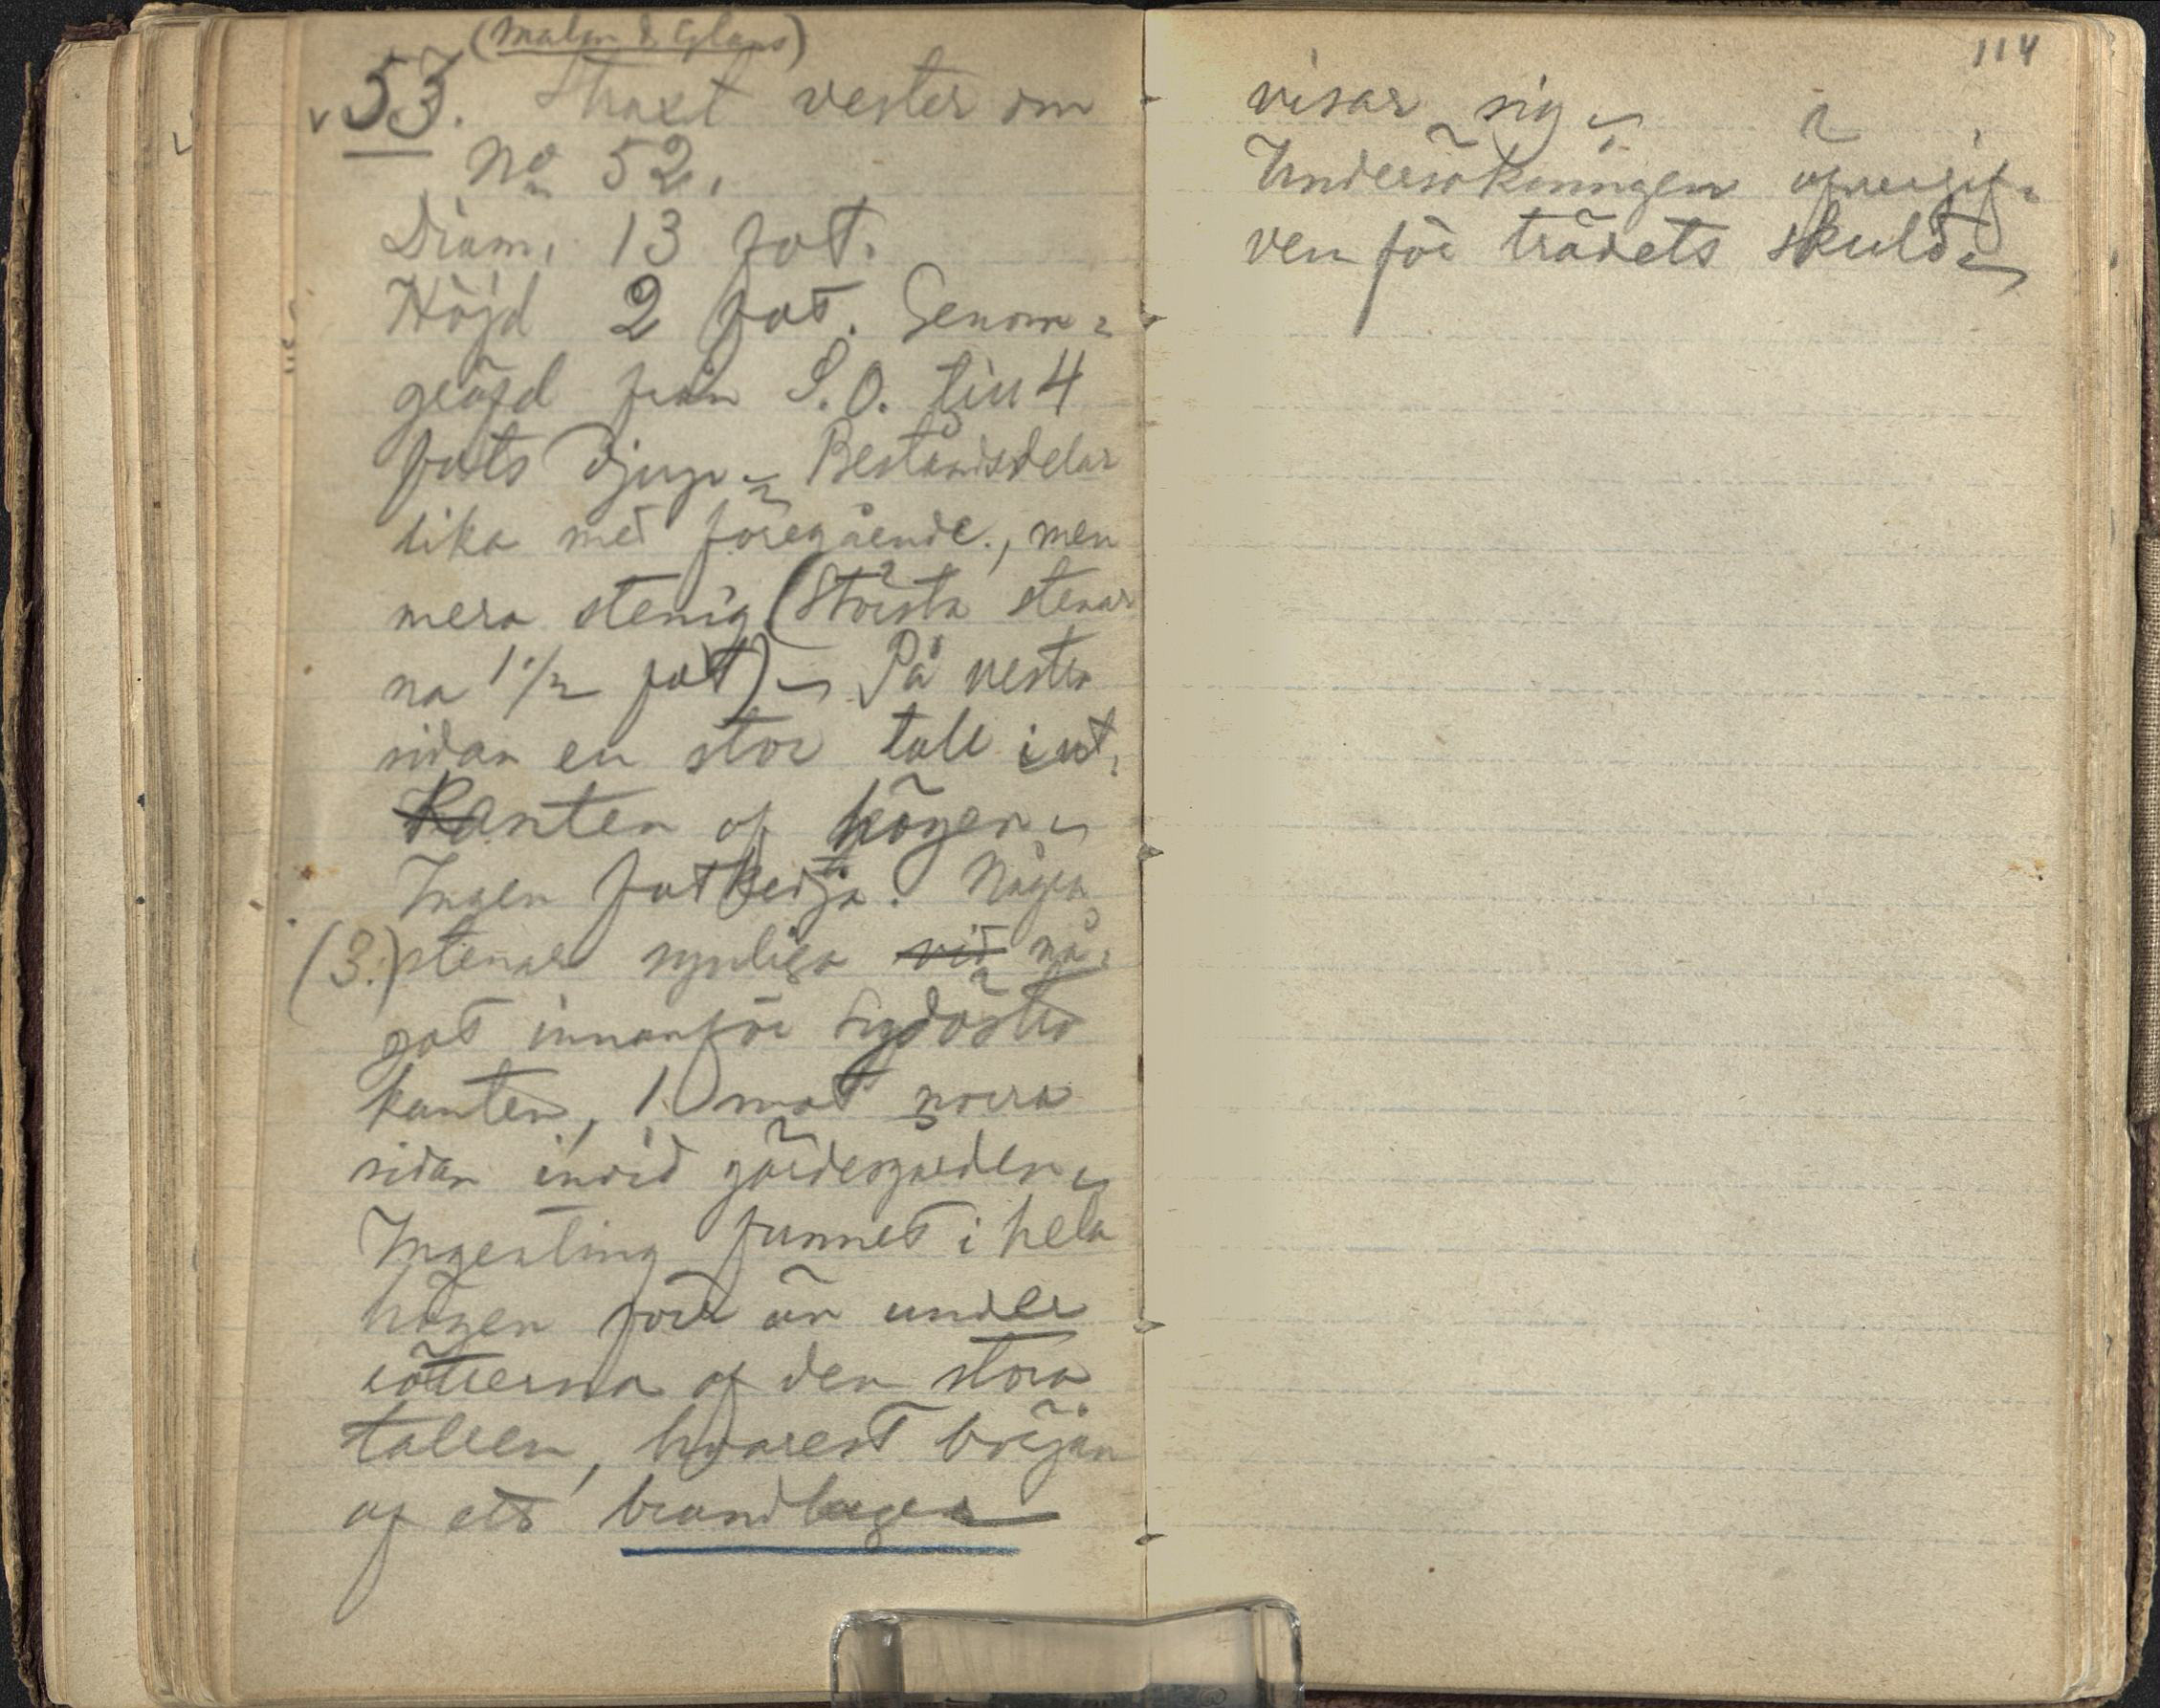 (Malm & Glans)
v 53. Straxt vester om
No 52.
Diam. 13 fot.
Höjd 2 fot. Genom-
gräfd från S.O. till 4
fots djup. Beståndsdelar
lika med föregående, men
mera stenig (Största stenar
na 1 1/2 fot) På vestra
sidan en stor tall i ut-
kanten af högen.
Ingen fotkedja. Några
(3.) stenar synliga vid nå-
got innanför sydöstra
kanten, 1 mot norra
sidan invid gärdesgården.
Ingenting funnet i hela
högen förr än under
rötterna af den stora
tallen, hvarest början
af ett brandlager
114
visar sig
Undersökningen öfvergif-
ven för trädets skuld.